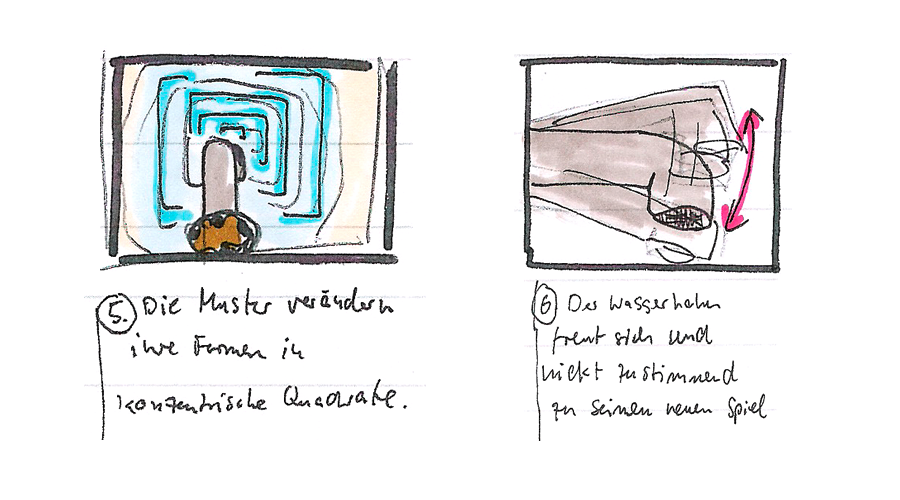 5. Die Muster verändern
ihre Formen in
konzentrische Quadrate.
6 Der Wasserhahn
freut sich und
nickt zustimmend
zu seinen neuen Spiel